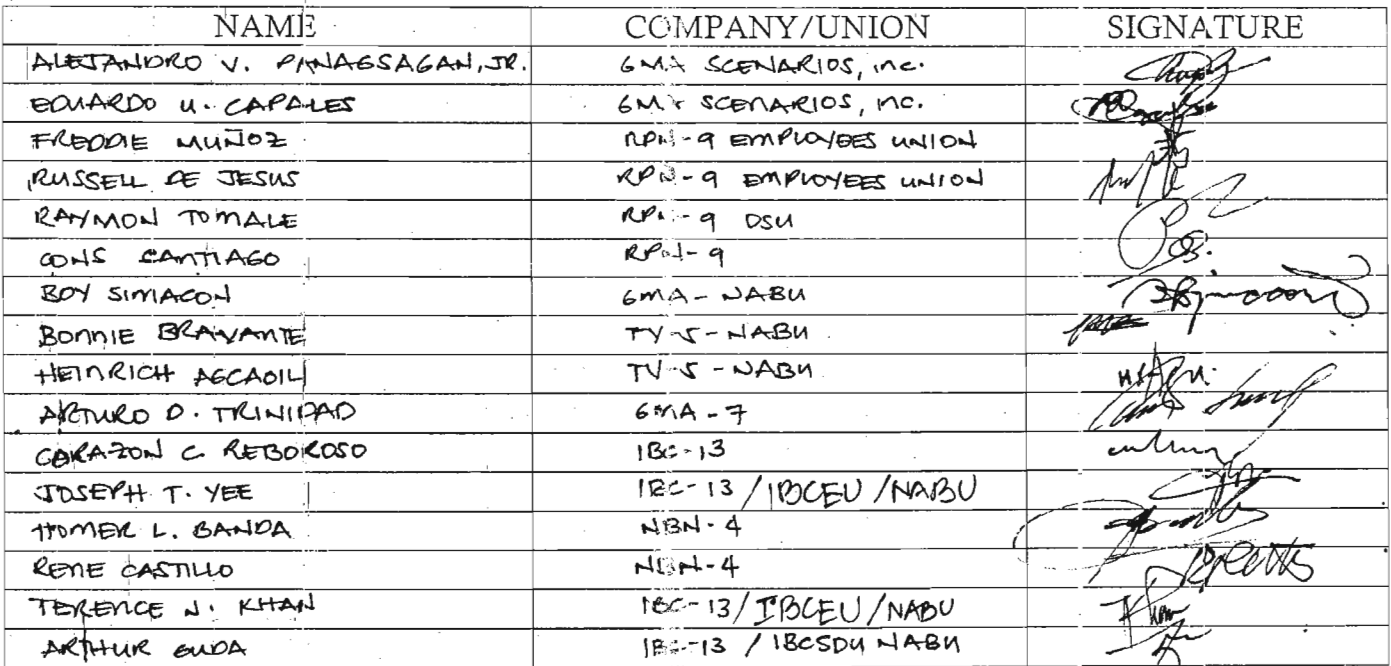 NAME COMPANY/UNION SIGNATURE
ALEJANDRO V. PANAGSAGAN, JR. GMA SCENARIOS, inc.
EDUARDO U. CAPALES GMA SCENARIOS, inc.
FREDDIE MUÑOZ RPN-9 EMPLOYEES UNION
RUSSELL DE JESUS RPN-9 EMPLOYEES UNION
RAYMON TOMALE RPN-9 DSU
CONS SANTIAGO RPN-9
BOY SIMACON GMA-NABU
BONNIE BRAVANTE TV-5-NABU
HEINRICH AGCAOILI TV-5-NABU
ARTURO D. TRINIDAD GMA-7
CORAZON C. REBOROSO IBC-13
JOSEPH T. YEE IBC-13/IBCEU/NABU
HOMER L. BANDA NBN-4
RENE CASTILLO NBN-4
TERENCE J. KHAN IBC-13/IBCEU/NABU
ARTHUR GUDA IBC-13/IBCSDU NABU